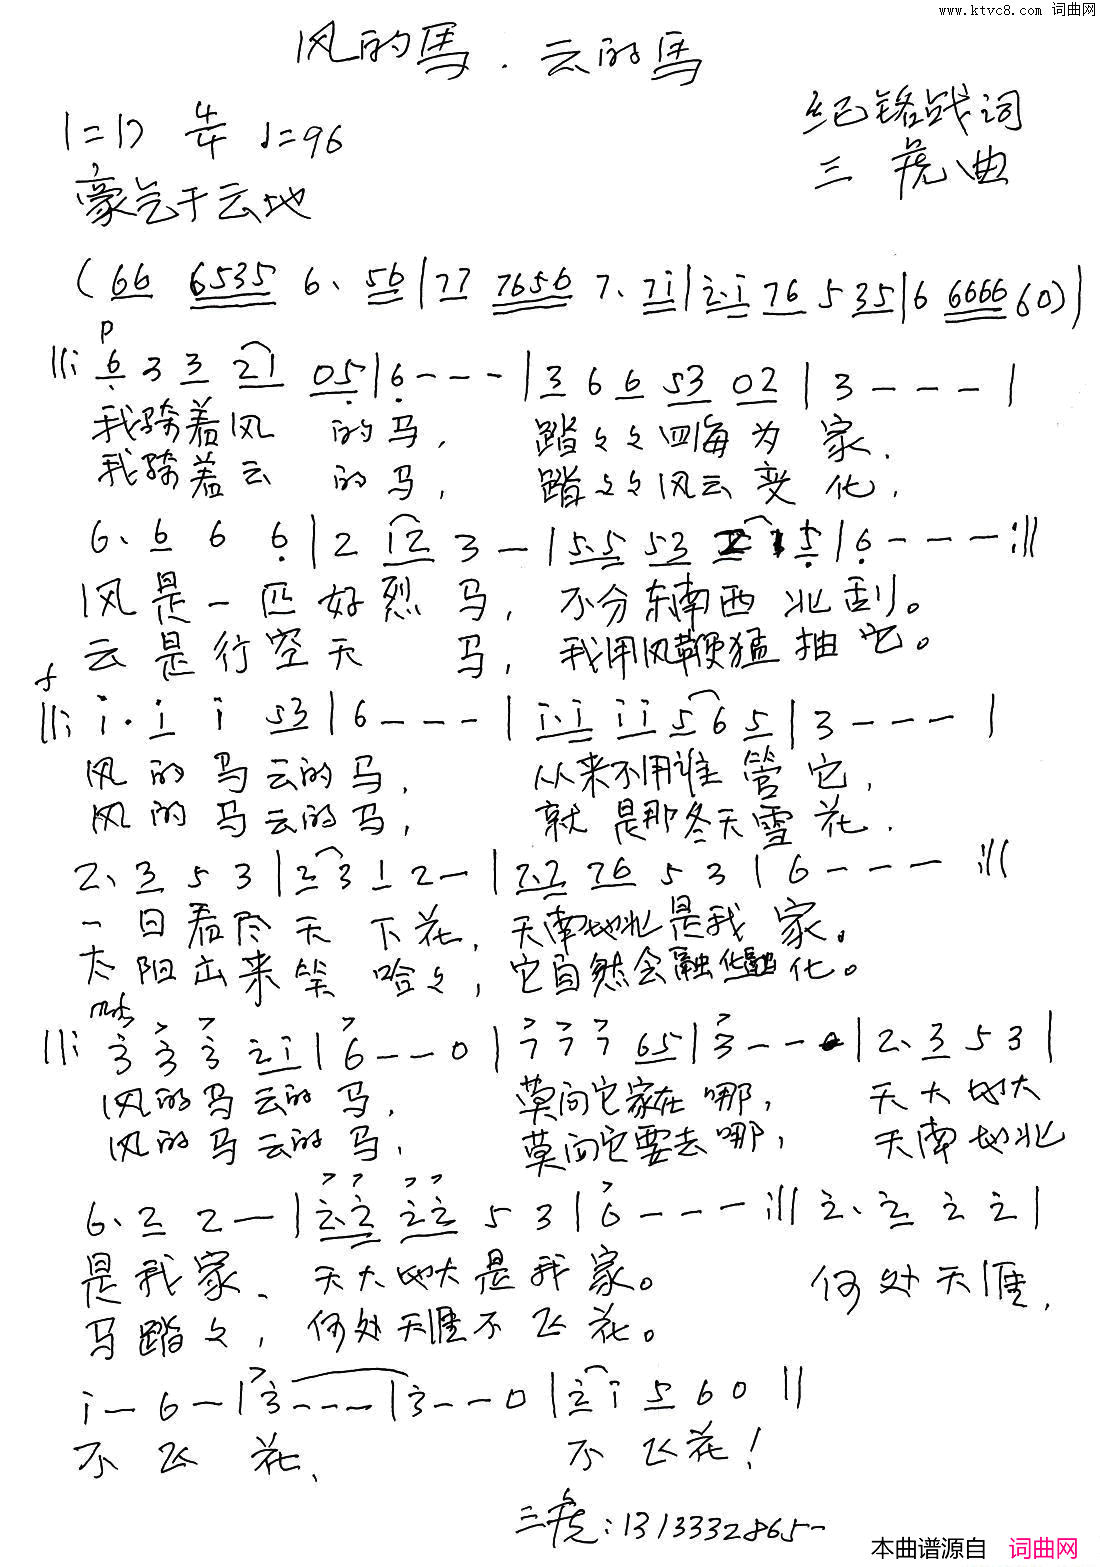 www.ktvc8.com 词曲网
风的馬．云的馬
纪铭战词
1=D 4/4 ♩=96
三虎曲
豪气于云地
(66 6535 6、56|77 7656 7、7i|i.i 76 5 35|6 6666 60)|
p
||: 6 3 3 21 05|6---|3 6 6 53 02|3---|
我骑着风 的马， 踏々々四海为 家．
我骑着云 的马， 踏々々风云变化．
6、6 6 6|2 12 3-|5.5 53 2 1 5|6---:||
风是一匹好烈 马，不分东南西北刮。
云是行空天 马，我用风鞭猛抽它。
f
||: i.i i 53|6---|i.i ii 5 6 5|3---|
风的马云的马， 从来不用谁管它，
风的马云的马， 就是那冬天雪花．
2、3 5 3|2 3 1 2-|2.2 76 5 3|6---:||
一日看尽天下花，天南地北是我家。
太阳出来笑哈々，它自然会融化化。
mf
||: 3 3 3 2i|6--0|7 7 7 65|3---|2、3 5 3|
风的马云的马， 莫问它家在哪， 天大地大
风的马云的马， 莫问它要去哪， 天南地北
6、2 2-|2.2 22 5 3|6---:|| 2、2 2 2|
是我家、天大地大是我家。 何处天涯，
马踏々，何处天涯不飞花。
i-6-|3---|3--0|2 i 5 60||
不飞花、 不飞花！
三虎：1313332865-
本曲谱源自 词曲网